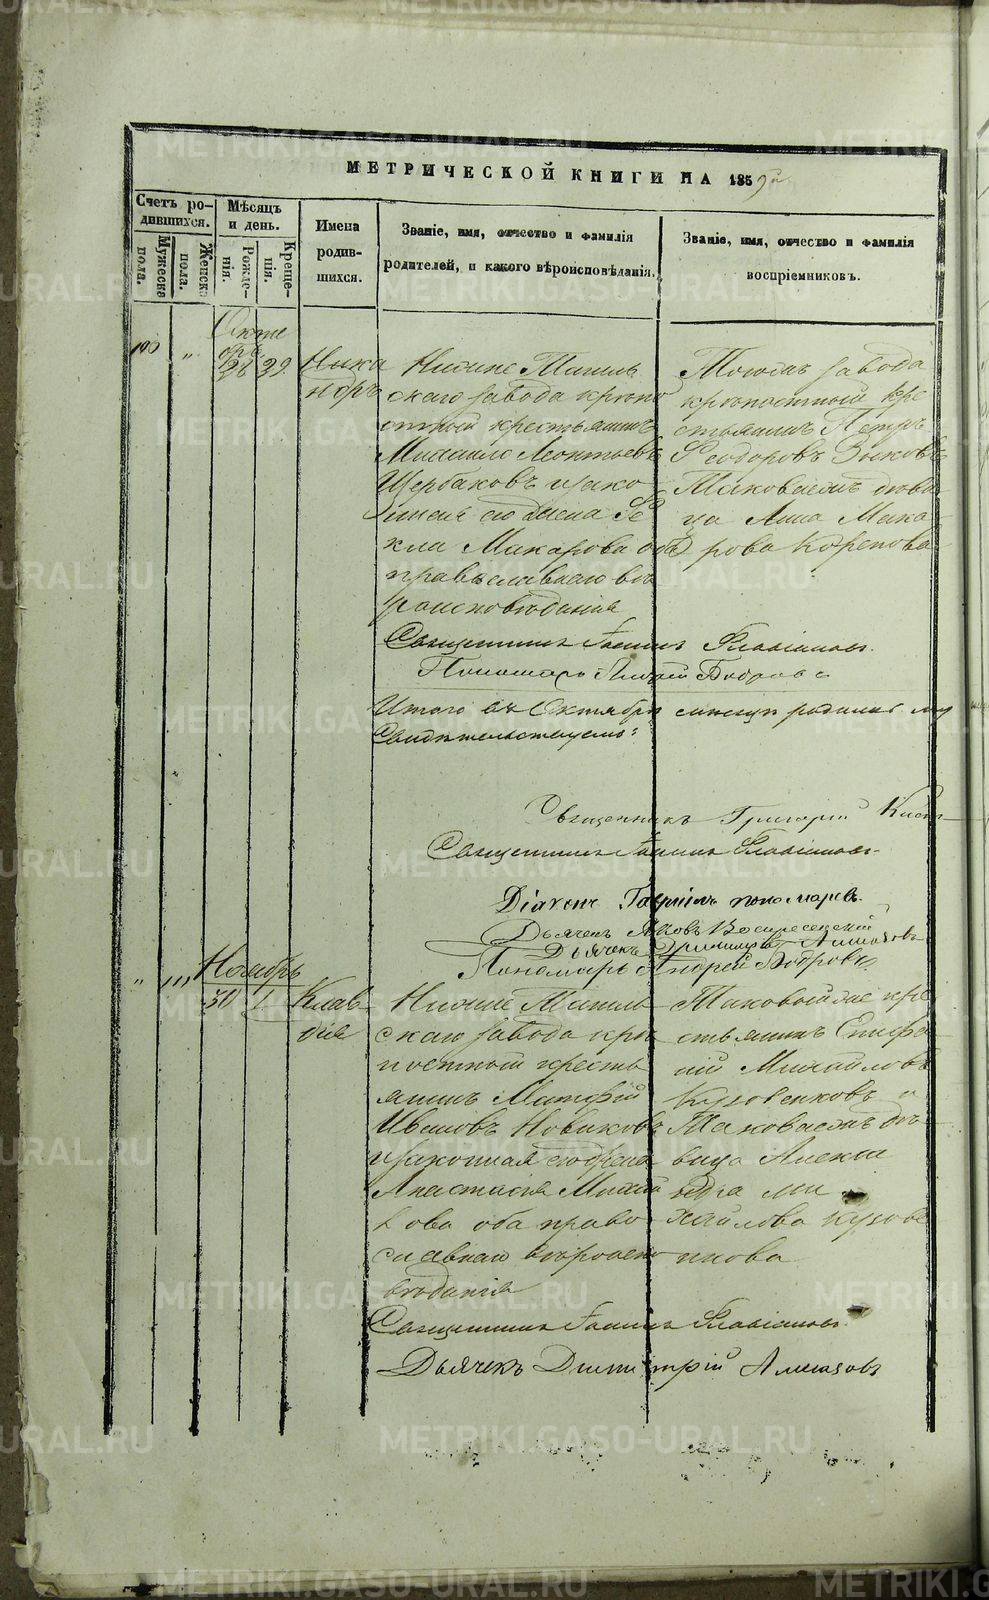 МЕТРИЧЕСКОЙ КНИГИ НА 1859
Счетъ ро-
дившихся.
Мужеска
пола.
Женска
пола.
Мѣсяцъ
и день.
Рожде-
нія.
Креще-
нія.
Имена
родив-
шихся.
Званіе, имя, отчество и фамилія
родителей, и какого вѣроисповѣданія.
Званіе, имя, отчество и фамилія
воспріемниковъ.
Октя
бря
28 29
Ника
норъ
Нижне Тагиль
скаго завода крѣпо
стный крестьянинъ
Михаило Леонтьевъ
Щербаковъ и зако
нная его жена Фе
кла Макарова оба
православнаго вѣ
роисповѣданія
Тогожъ завода
крѣпостный кре
стьянинъ Петръ
Феодоровъ Зыковъ
Таковаяжъ дѣви
ца Анна Мака
рова Корепова
Священникъ Іоаннъ Флавіановъ.
Пономарь Андрей Бобровъ
Итого въ Октябрѣ месяцѣ родилось му
Свидѣтельствуемъ:
Священникъ Григорій
Священникъ Іоаннъ Флавіановъ.
Діаконъ Гавріилъ Пономаревъ.
Дьячекъ Яковъ Воскресенскій
Дьячекъ Димитрій Алмазовъ
Пономарь Андрей Бобровъ
Ноябрь
30 1
Клав-
дія
Нижне Тагиль
скаго завода крѣ
постный кресть
янинъ Митрофій
Ивановъ Новиковъ
и законная его жена
Анастасія Михай
лова оба право
славнаго вѣроиспо
вѣданія
Таковойже кре
стьянинъ Епифа
ній Михайловъ
Кузовенковъ и
Таковаяжъ дѣ
вица Алекса
ндра Ми
хайлова Кузове
нкова
Священникъ Іоаннъ Флавіановъ.
Дьячекъ Димитрій Алмазовъ
METRIKI.GASO-URAL.RU